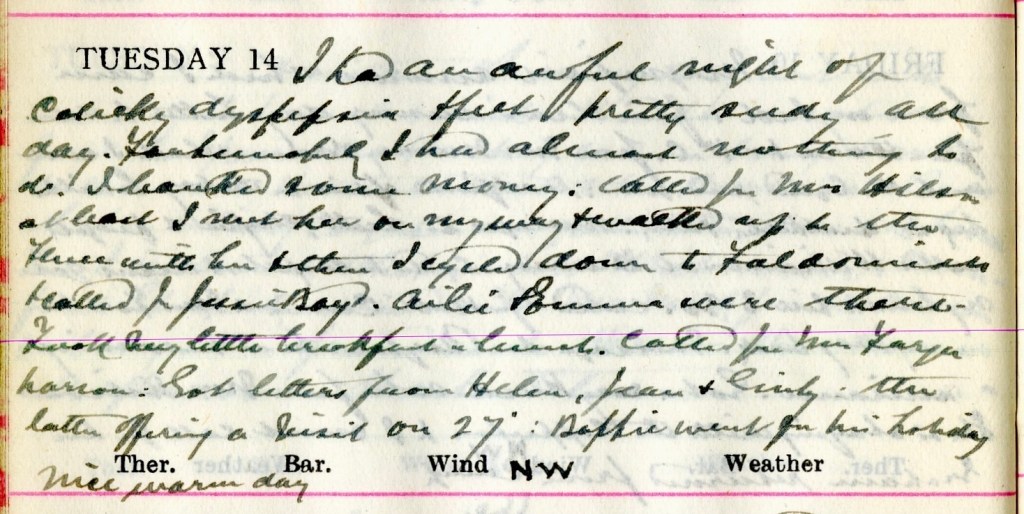 TUESDAY 14 I had an awful night of
colicky dyspepsia & felt pretty seedy all
day. Fortunately I had almost nothing to
do. I banked some money. Called for Mrs
at least I met her on my way & walked up to the
House with her & then I cycled down to
& called for Jessie Boyd. Ailie & Emma were there.
Took very little breakfast or lunch. Called for Mrs
Got letters from Helen, Jean & : the
latter offering a visit on 27: went for his holiday
Ther. Bar. Wind NW Weather
Nice warm day